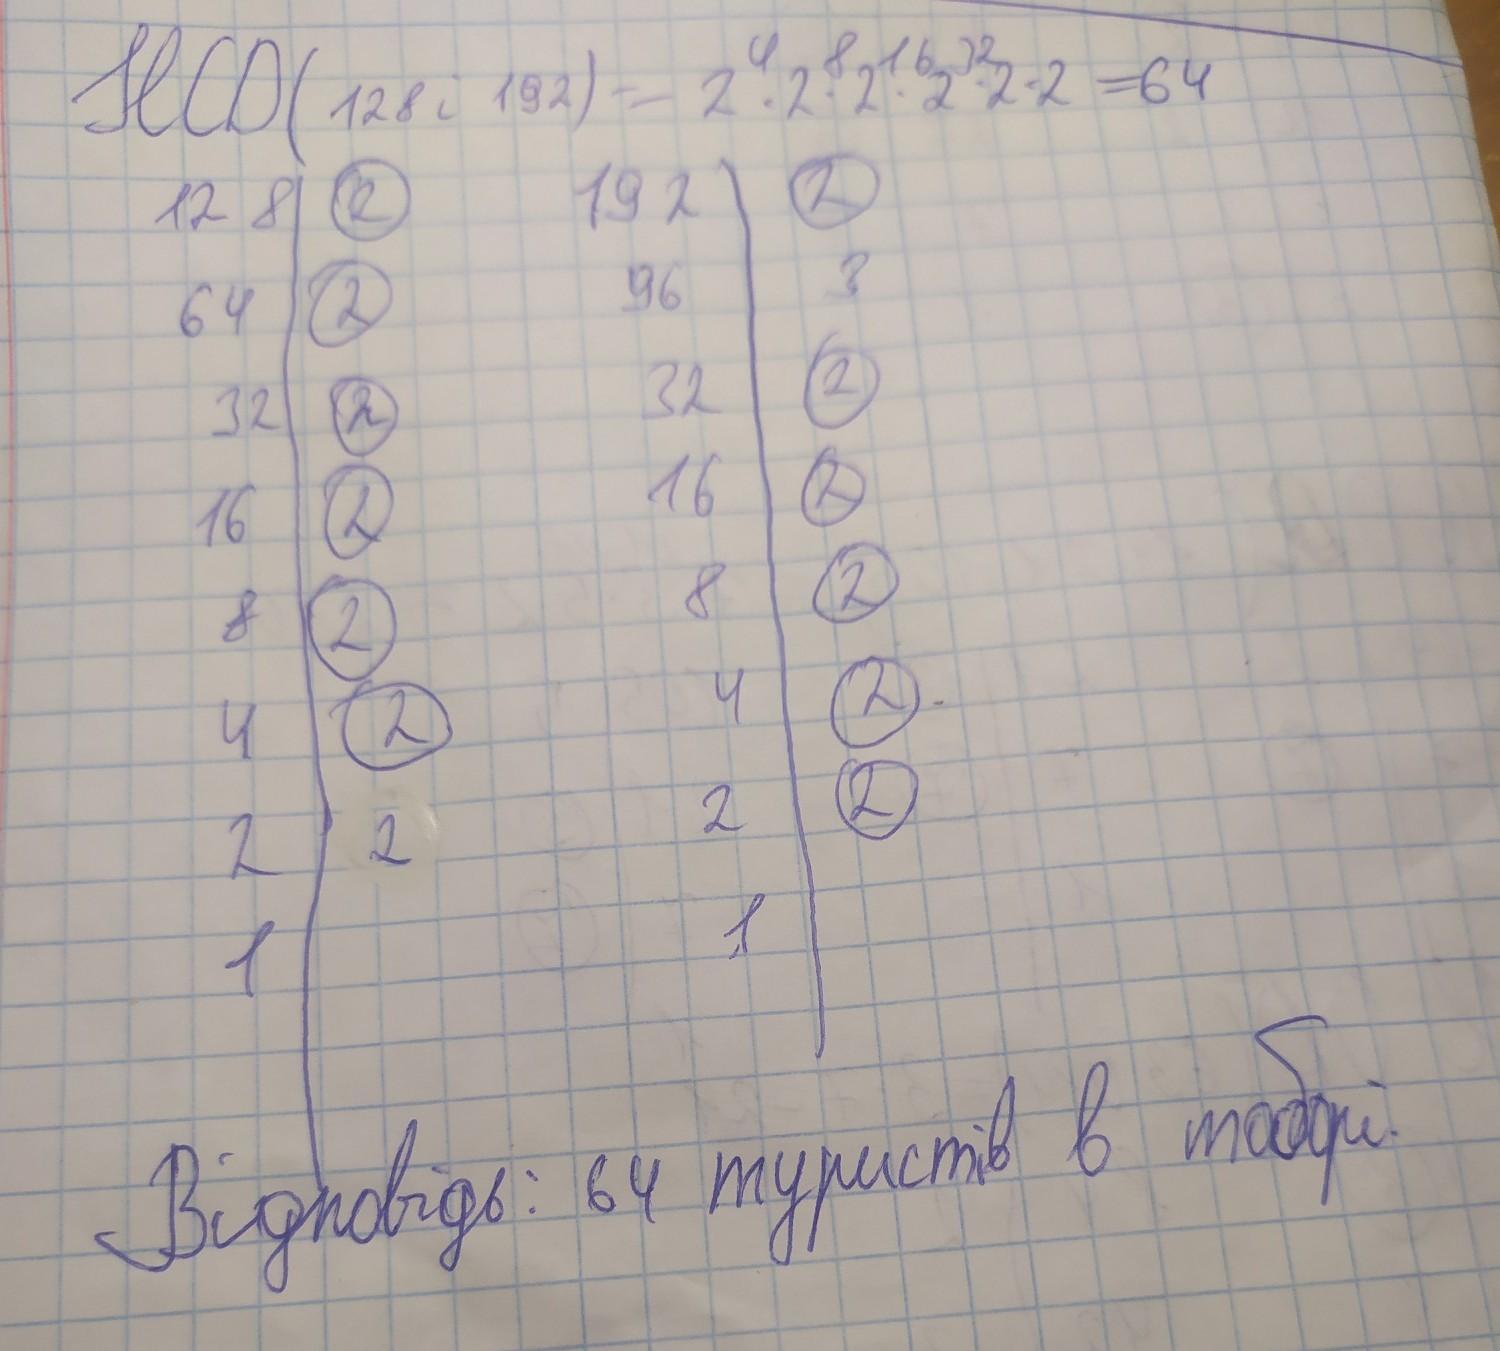 НСД(128 і 192) = 2 · 2 · 2 · 2 · 2 · 2 = 64
4 8 16 32
128 2 192 2
64 2 96 3
32 2 32 2
16 2 16 2
8 2 8 2
4 2 4 2
2 2 2 2
1 1
Відповідь: 64 туристів в таборі.